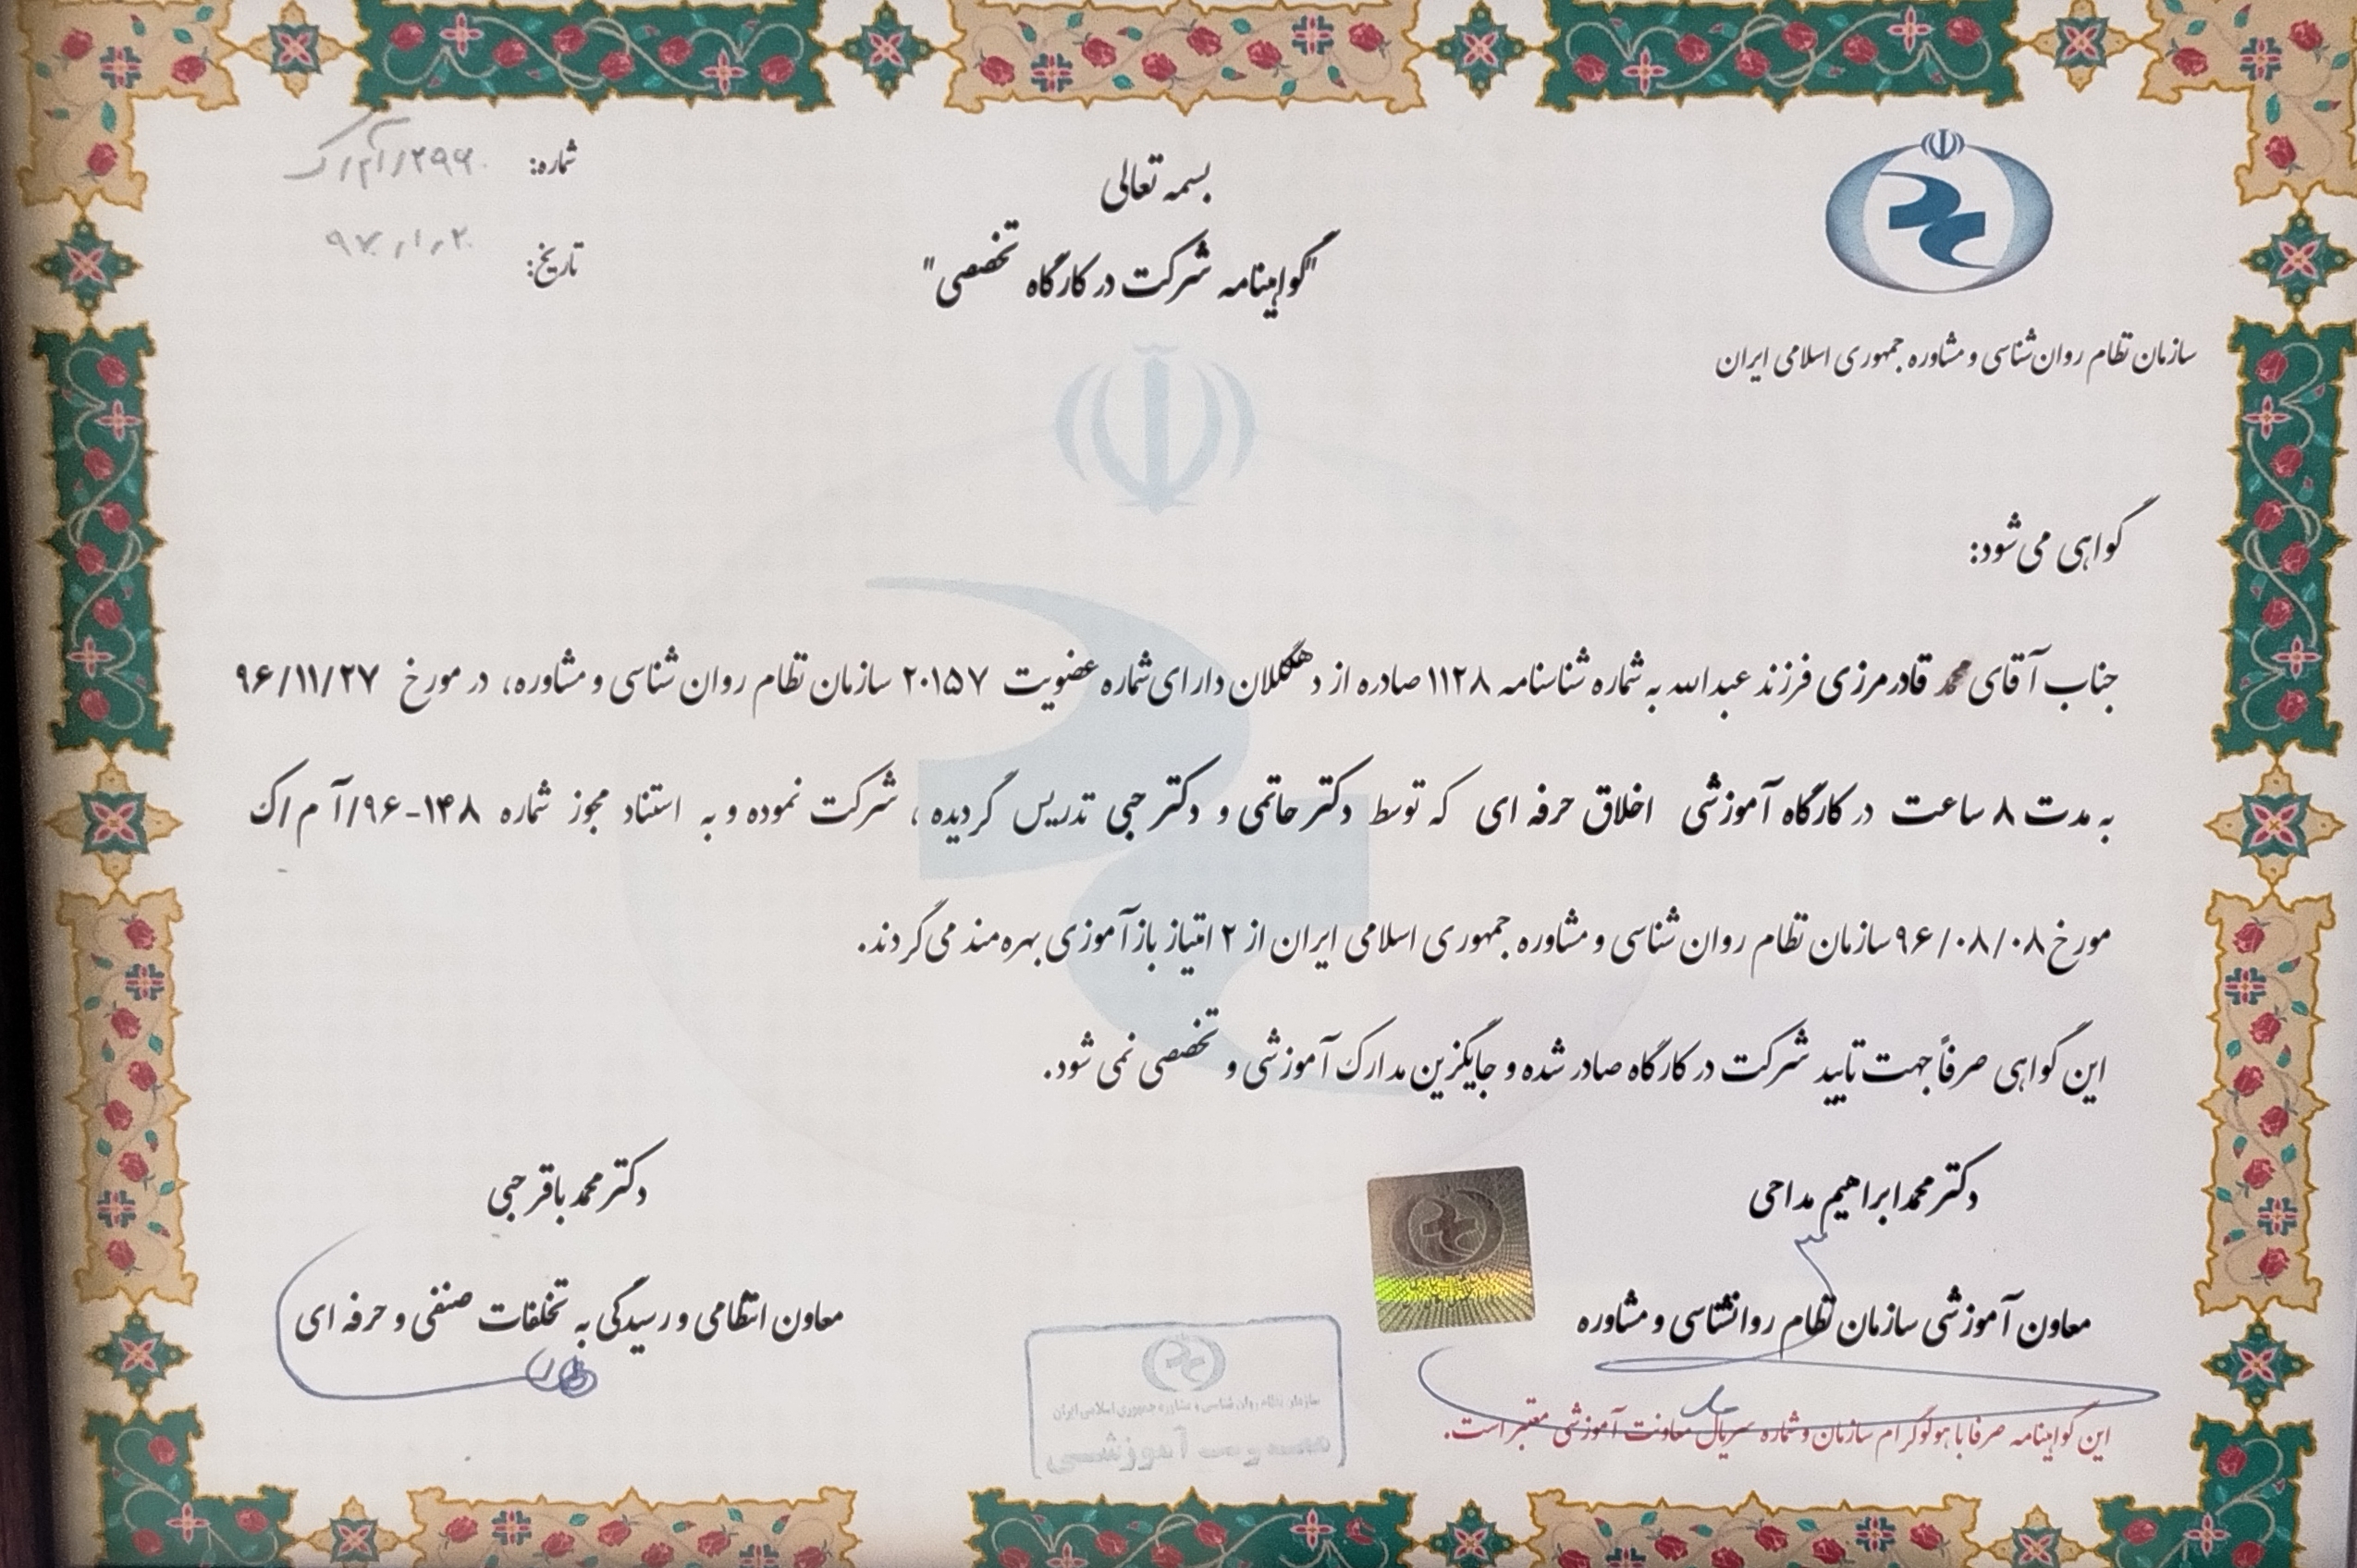 بسمه تعالی
"گواهینامه شرکت در کارگاه تخصصی"
شماره:
تاریخ: ۹۷/۱/۲۰
سازمان نظام روان‌شناسی و مشاوره جمهوری اسلامی ایران
گواهی می‌شود:
جناب آقای محمد قادرمرزی فرزند عبدالله به شماره شناسنامه ۱۱۲۸ صادره از دهگلان دارای شماره عضویت ۲۰۱۵۷ سازمان نظام روان شناسی و مشاوره، در مورخ ۹۶/۱۱/۲۷
به مدت ۸ ساعت در کارگاه آموزشی اخلاق حرفه ای که توسط دکتر حاتمی و دکتر حبی تدریس گردیده، شرکت نموده و به استناد مجوز شماره ۱۴۸-۹۶/آ م/ک
مورخ ۹۶/۰۸/۰۸ سازمان نظام روان شناسی و مشاوره جمهوری اسلامی ایران از ۲ امتیاز بازآموزی بهره‌مند می‌گردند.
این گواهی صرفاً جهت تایید شرکت در کارگاه صادر شده و جایگزین مدارک آموزشی و تخصصی نمی شود.
دکتر محمدابراهیم مداحی
معاون آموزشی سازمان نظام روانشناسی و مشاوره
دکتر محمد باقر حبی
معاون انتظامی و رسیدگی به تخلفات صنفی و حرفه ای
سازمان نظام روان شناسی و مشاوره جمهوری اسلامی ایران
آموزشی
این گواهینامه صرفا با هولوگرام سازمان و شماره سریال معاونت آموزشی معتبر است.